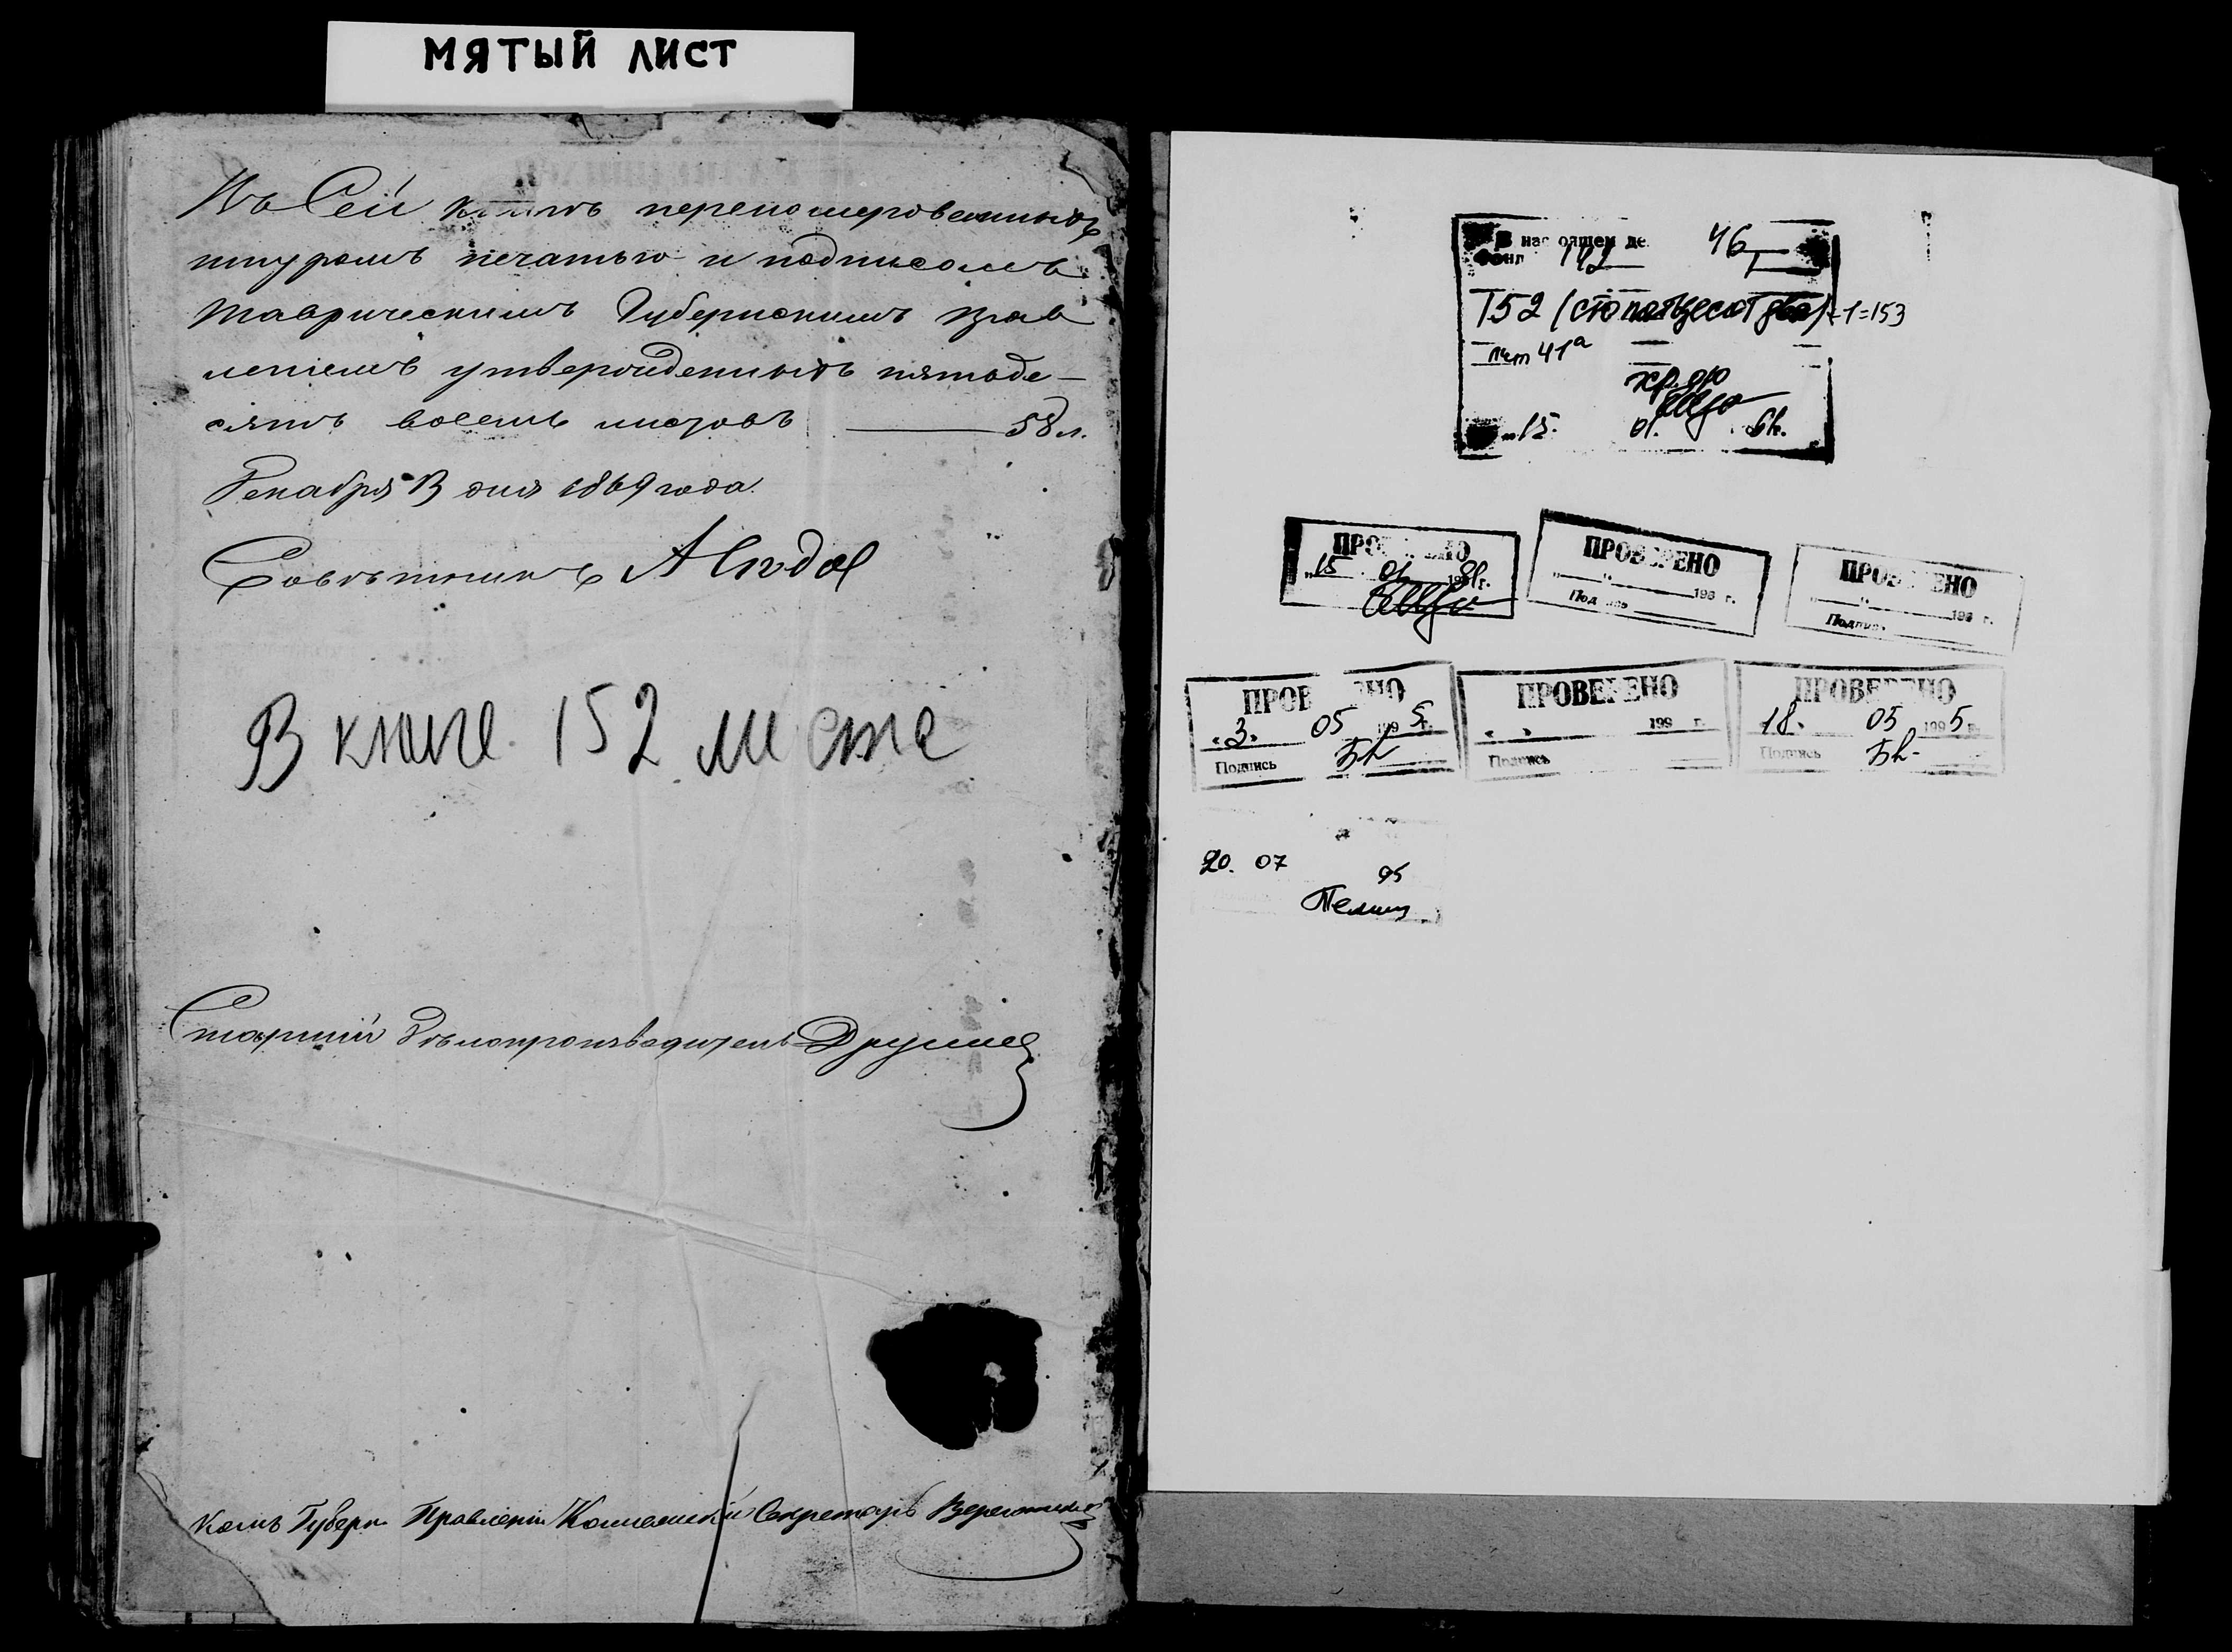 МЯТЫЙ ЛИСТ
Въ Сей книгѣ перенумерованныхъ
шнуромъ печатью и подписомъ
Таврическимъ Губернскимъ Прав
леніемъ утвержденныхъ пятьде-
сятъ восемь листовъ 58 л.
Декабря 13 дня 1869 года.
Совѣтникъ
В книге 152 листа
Старшій Дѣлопроизводитель
Губерн. Правленія Коллежскій Секретарь
В настоящем де 46
Фонд
152 (сто пятьдесят два) +1=153
лит 41а
15. 01.
ПРОВЕРЕНО
15 01 198 г.
ПРОВЕРЕНО
198 г.
Подпись
ПРОВЕРЕНО
198 г.
Подпись
ПРОВЕРЕНО
«3» 05 1995 г.
Подпись
ПРОВЕРЕНО
« » 199 г.
Подпись
ПРОВЕРЕНО
«18» 05 1995 г.
Подпись
20. 07 95